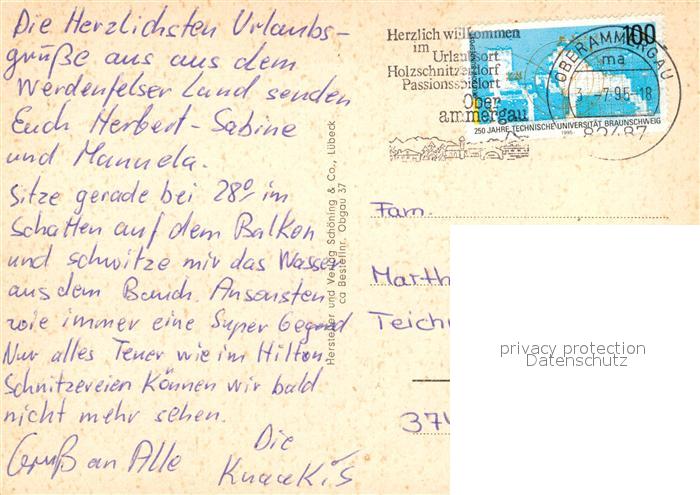 Die Herzlichsten Urlaubs-
grüße aus aus dem
Werdenfelser Land senden
Euch Herbert-Sabine
und Manuela.
Sitze gerade bei 28° im
Schatten auf dem Balkon
und schwitze mir das Wasser
aus dem Bauch. Ansonsten
wie immer eine Super Gegend
Nur alles Teuer wie im Hilton
Schnitzereien können wir bald
nicht mehr sehen.
Gruß an Alle
Die
Knaaki's
Hersteller und Verlag Schöning & Co., Lübeck
ca Bestellnr. Obgau 37
Herzlich willkommen
im
Urlaubsort
Holzschnitzerdorf
Passionsspielort
Ober
ammergau
100
250 JAHRE TECHNISCHE UNIVERSITÄT BRAUNSCHWEIG
1995
OBERAMMERGAU
ma
3.-7.95-18
82487
Fam.
Marth
Teich
374
privacy protection
Datenschutz